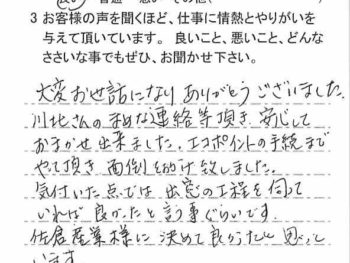 3 お客様の声を聞くほど、仕事に情熱とやりがいを
与えて頂いています。 良いこと、悪いこと、どんな
ささいな事でもぜひ、お聞かせ下さい。
大変お世話になり ありがとうございました。
川北さんのまめな連絡等頂き 安心して
おまかせ出来ました。エコポイントの手続まで
やって頂き 面倒をお掛け致しました。
気付いた点では 出窓の工程を伺って
いれば 良かったと言う事ぐらいです。
佐倉産業様に決めて良かったと思って
います